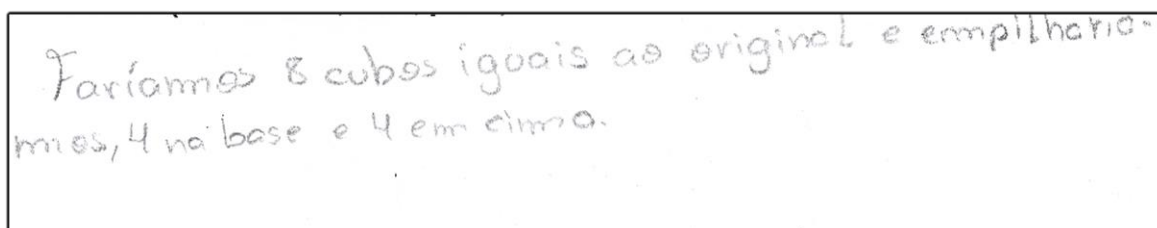 Faríamos 8 cubos iguais ao original e empilharía-
mos, 4 na base e 4 em cima.